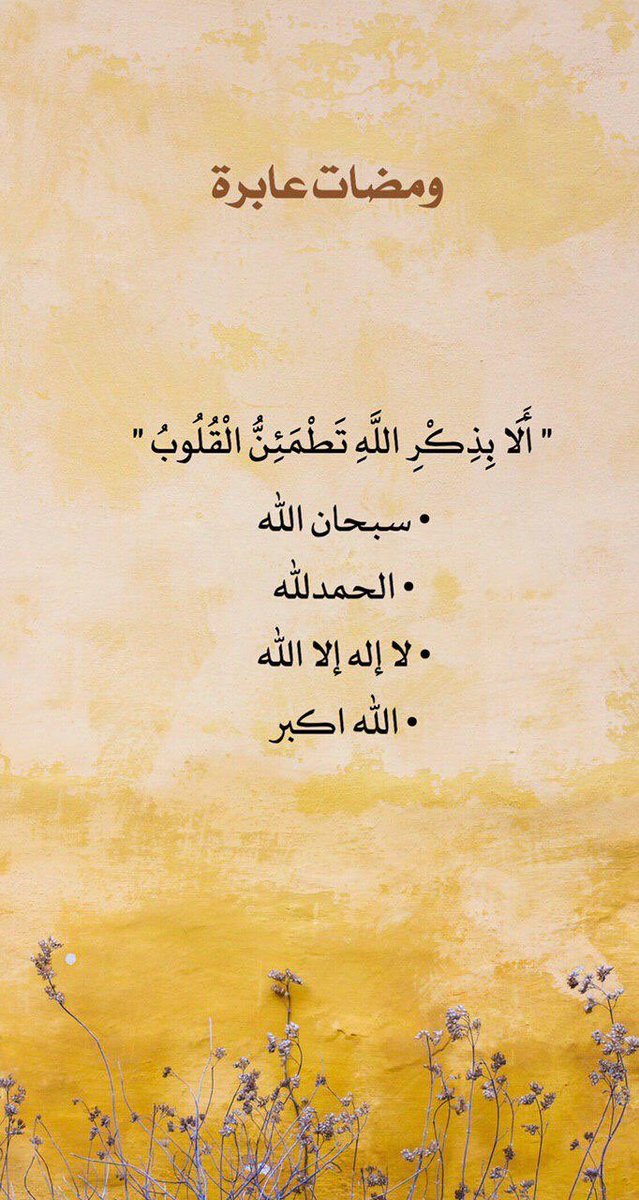 ومضات عابرة
" أَلَا بِذِكْرِ اللَّهِ تَطْمَئِنُّ الْقُلُوبُ "
• سبحان الله
• الحمدلله
• لا إله إلا الله
• الله اكبر